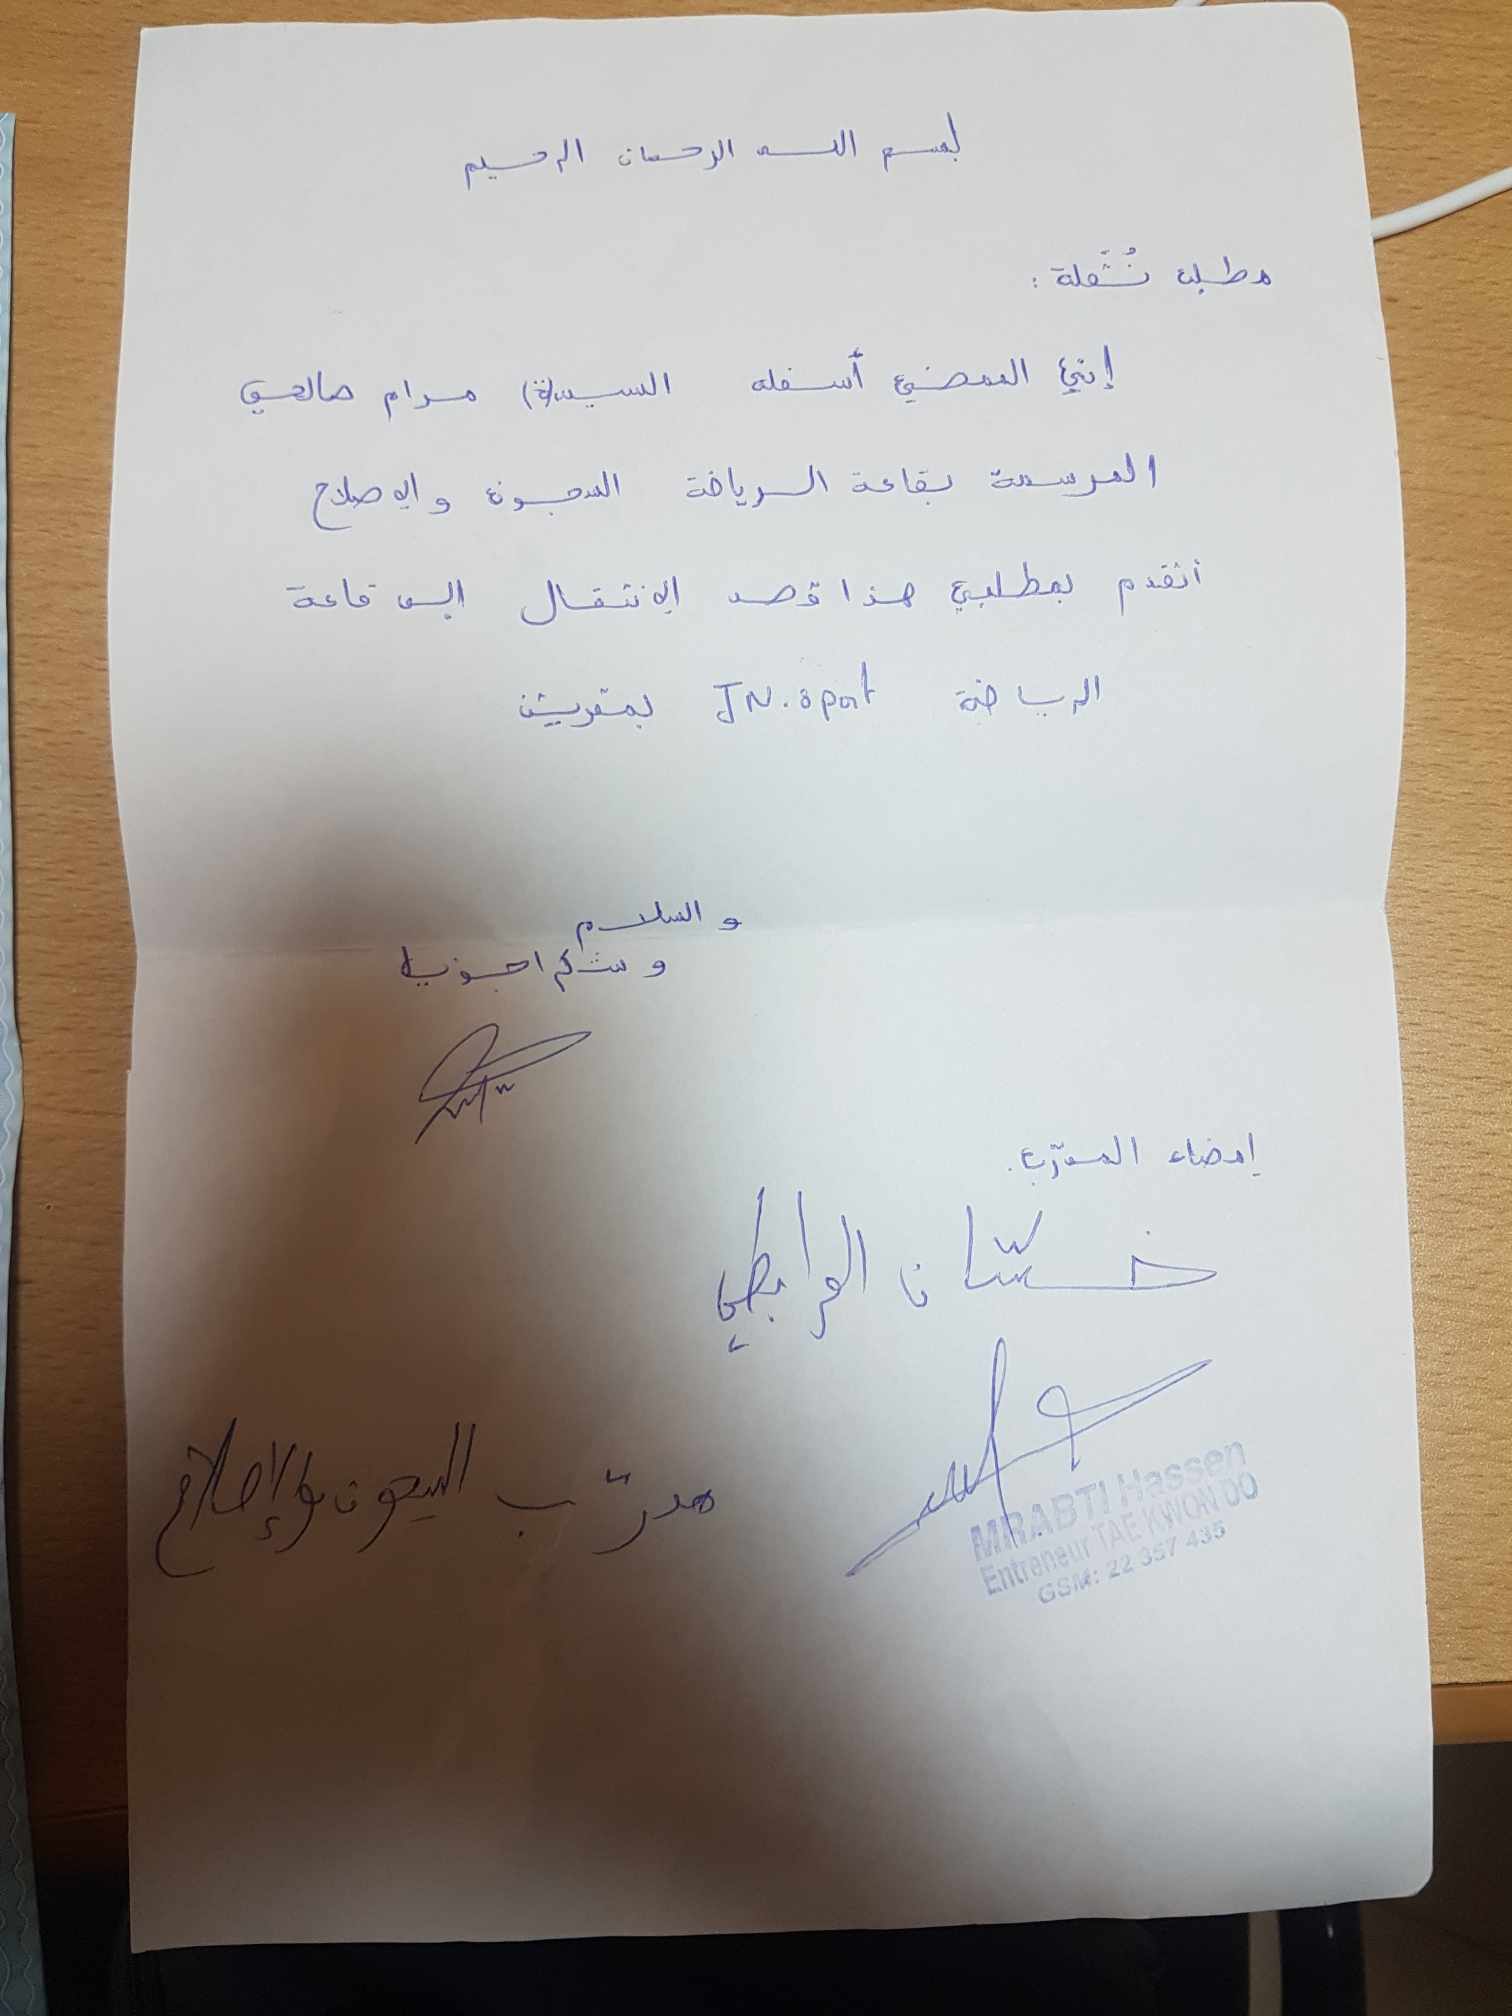 بسم الله الرحمان الرحيم
مطلب نُقلة :
إني الممضي أسفله السيد(ة) مرام صالحي
المرسمة بقاعة الرياضة السجون والإصلاح
أتقدم بمطلبي هذا قصد الانتقال إلى قاعة
الرياضة JN.sport بمقرين
والسلام
وشكرا جزيلا
إمضاء المدرّب.
حسّان المرابطي
مدرّب السجون والإصلاح
MRABTI Hassen
Entreneur TAE KWON DO
GSM: 22 357 435